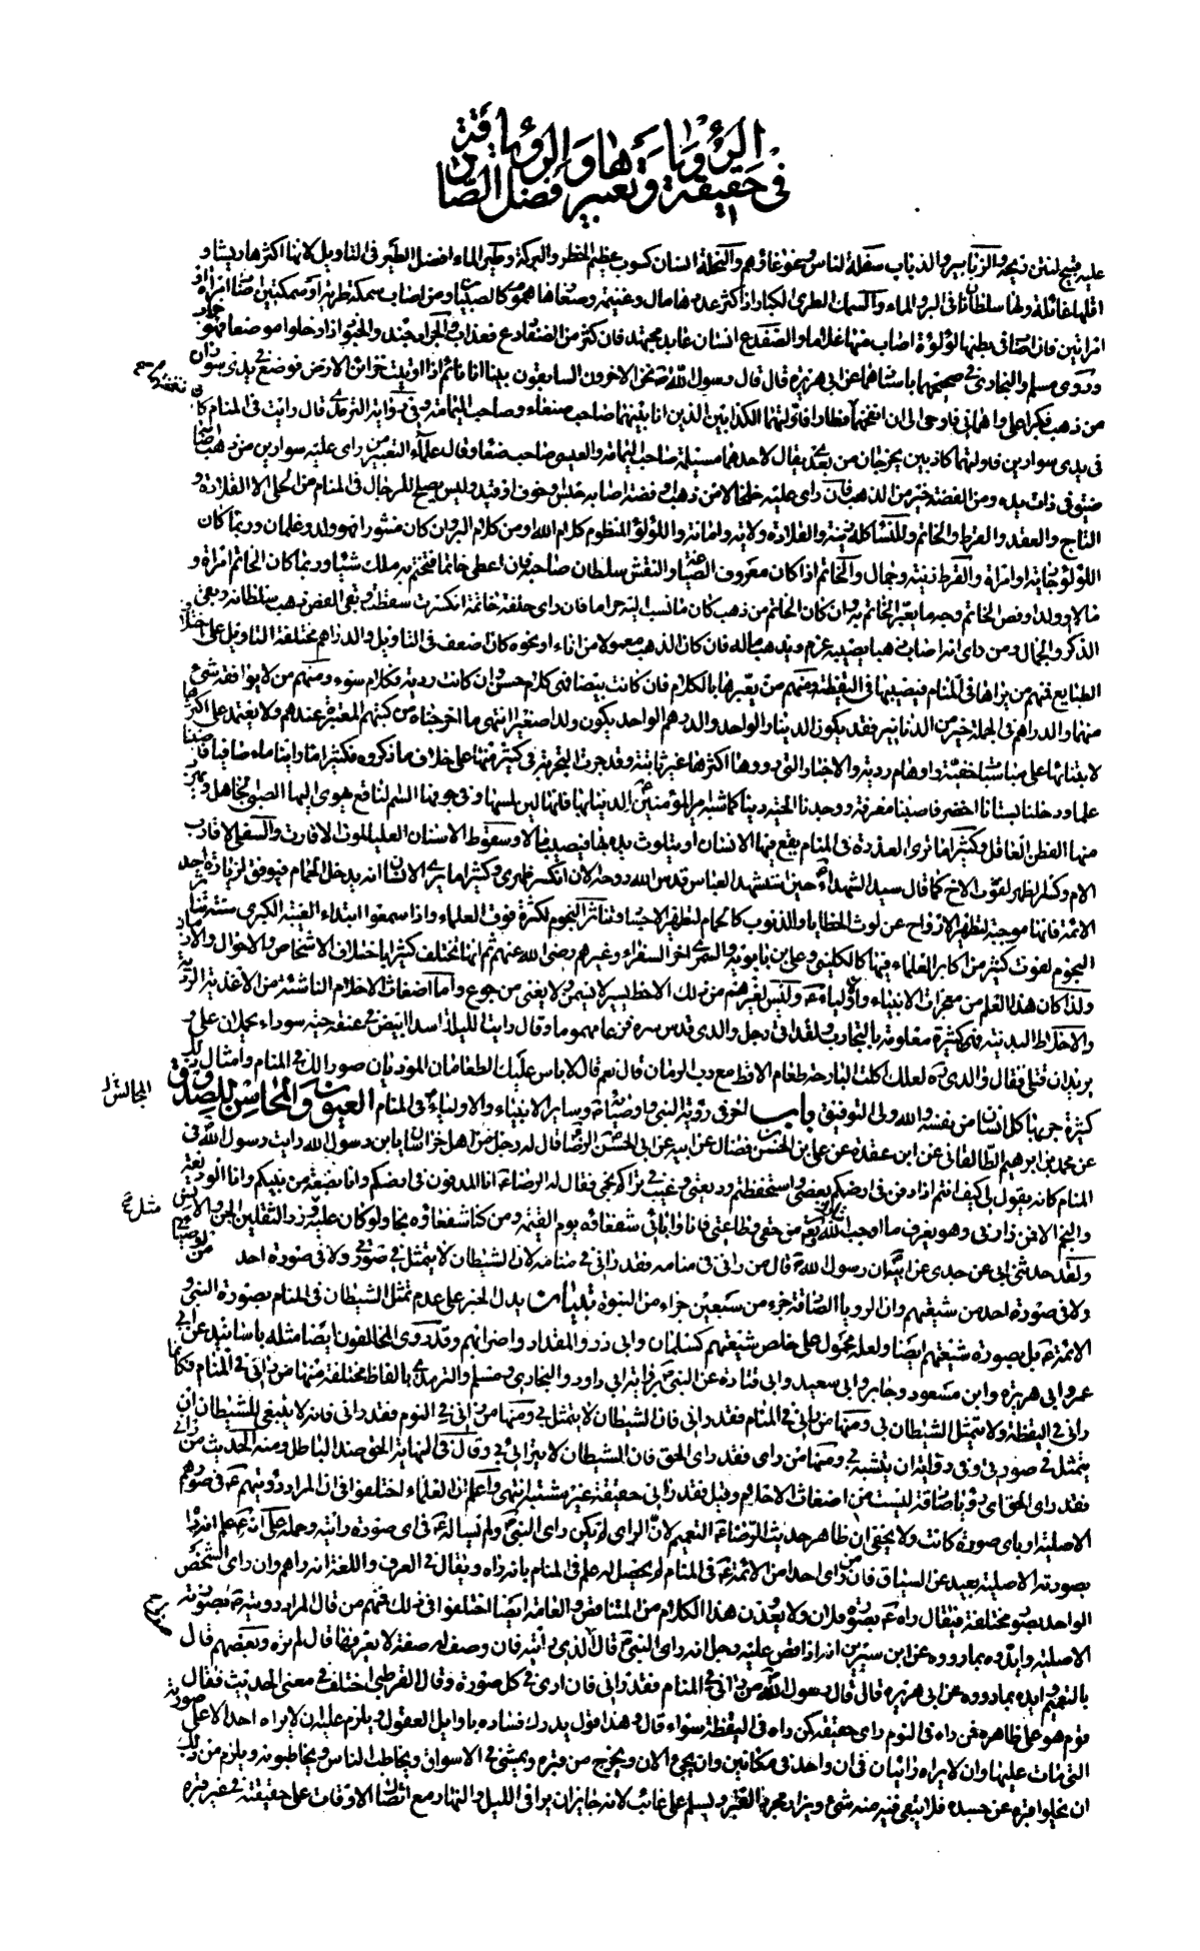 في حقيقة الرؤيا وتعبيرها وفضل الرؤيا الصادقة
عليه قبيح لنتن ريحه والزنابير والذباب سفلة الناس وغوغاؤهم والنحلة انسان كسوب عظيم الخطر والبركة وطير الماء افضل الطير في التاويل لانها اكثرها ريشا و
اقلها غائلة ولها سلطانان في البر والماء والسمك الطري الكبار اذا كثر عددها مال وغنيمة وصغارها هموم كالصبيان ومن اصاب سمكة طرية او سمكتين اصاب امراة او
امراتين فان اصاب في بطنها لؤلؤة اصاب منها غلاما والضفدع انسان عابد مجتهد فان كثر من الضفادع فعذاب والجراد جند والجنود اذا دخلوا موضعا فهو جراد
وروى مسلم والبخاري في صحيحيهما باسنادهما عن ابي هريرة قال قال رسول الله ص نحن الاخرون السابقون بينا انا نائم اذ اوتيت خزائن الارض فوضع في يدي سواران
من ذهب فكبرا علي واهماني فاوحى الي ان انفخهما فطارا فاولتهما الكذابين الذين انا بينهما صاحب صنعاء وصاحب اليمامة وفي رواية الترمذي قال رايت في المنام كان
في يدي سوارين فاولتهما كاذبين يخرجان من بعدي يقال لاحدهما مسيلمة صاحب اليمامة والعنسي صاحب صنعا وقال علماء التعبير من راى عليه سوارين من ذهب اصابه
ضيق في ذات يده ومن الفضة خير من الذهب فان راى عليه خلخالا من ذهب او فضة اصابه حبس وخوف او قيد وليس يصلح للرجال في المنام من الحلي الا القلادة و
التاج والعقد والقرط والخاتم وللنساء كله زينة والقلادة ولاية وامانة واللؤلؤ المنظوم كلام الله او من كلام البر وان كان منثورا فهو ولد وغلمان وربما كان
اللؤلؤ جارية او امراة والقرط زينة وجمال والخاتم اذا كان معروف الصياغة والنقش سلطان صاحبه فان اعطي خاتما فتختم به ملك شيئا وربما كان الخاتم امراة و
مالا وولدا وفص الخاتم وجه ما يعبر الخاتم به وان كان الخاتم من ذهب كان ما نسب اليه حراما فان راى حلقة خاتمه انكسرت سقطت وبقي الفص ذهب سلطانه وبقي
الذكر والجمال ومن راى انه اصاب ذهبا يصيبه غرم ويذهب ماله فان كان الذهب معمولا من اناء او نحوه كان اضعف في التاويل والدراهم مختلفة التاويل على اختلاف
الطبايع فمنهم من يراها في المنام فيصيبها في اليقظة ومنهم من يعبرها بالكلام فان كانت بيضا فهي كلام حسن وان كانت ردية فكلام سوء ومنهم من لا يوافقه شيء
منها والدراهم في الجملة خير من الدنانير فقد يكون الدينار الواحد والدرهم الواحد يكون ولدا صغيرا انتهى ما اخرجناه من كتبهم المعتبرة عندهم ولا يعتمد على اكثرها
لابتنائها على مناسبات خفية واوهام ردية والاخبار التي رووها اكثرها غير ثابتة وقد جرت التجربة في كثير منها على خلاف ما ذكروه فكثيرا ما راينا ماء صافيا فاصبنا
علما ودخلنا بستانا اخضر فاصبنا معرفة ووجدنا الحية دينا كما شبه امير المؤمنين ع الدنيا بها فانها لين لمسها وفي جوفها السم الناقع يهوي اليها الصبي الجاهل ويحذر
منها الفطن العاقل وكثيرا ما نرى العذرة في المنام يقع فيها الانسان او يتلوث يده بها فيصيب مالا وسقوط الاسنان العليا لموت الاقارب والسفلى لاقارب
الام وكسر الظهر لفوت الاخ كما قال سيد الشهداء ع حين استشهد العباس قدس الله روحه الان انكسر ظهري وكثيرا ما يرى الانسان انه يدخل الحمام فيوفق لزيارة احد
الائمة فانها موجبة لتطهير الارواح عن لوث الخطايا والذنوب كالحمام لتطهير الاجساد وتناثر النجوم لكثرة فوت العلماء واذا سمعوا ابتداء الغيبة الكبرى سنة تناثر
النجوم لفوت كثير من اكابر العلماء فيها كالكليني وعلي بن بابويه والسمري اخر السفراء وغيرهم رضي الله عنهم ثم انها تختلف كثيرا باختلاف الاشخاص والاحوال والازمان
ولذا كان هذا العلم من معجزات الانبياء واولياءه ع وليس لغيرهم من ذلك الا حظ يسير لا يسمن ولا يغني من جوع واما اضغاث الاحلام الناشئة من الاغذية الردية
والاخلاط البدنية فهي كثيرة معلومة بالتجارب ولقد اتى رجل والدي قدس سره فزعا مهموما وقال رايت الليلة اسدا ابيض في عنقه حية سوداء يحملان علي و
يريدان قتلي فقال والدي ره لعلك اكلت البارحة طعام الاقط مع رب الرمان قال نعم قال لا باس عليك الطعامان الموذيان صورا لك في المنام وامثال ذلك
كثيرة جربها كل انسان من نفسه والله ولي التوفيق باب اخر في رؤية النبي واوصيائه ع وساير الانبياء والاولياء في المنام العيون والمجالس للصدوق
عن محمد بن ابرهيم الطالقاني عن ابن عقدة عن علي بن الحسن بن فضال عن ابيه عن ابي الحسن الرضا قال قال له رجل من اهل خراسان يا ابن رسول الله رايت رسول الله في
المنام كانه يقول لي كيف انتم اذا دفن في ارضكم بعضي واستحفظتم وديعتي وغيب في ثراكم نجمي فقال له الرضا ع انا المدفون في ارضكم وانا بضعة من نبيكم وانا الوديعة
والنجم الا فمن زارني وهو يعرف ما اوجب الله تبارك وتعالى من حقي وطاعتي فانا وابائي شفعاؤه يوم القيمة ومن كنا شفعاؤه نجا ولو كان عليه وزر الثقلين الجن والانس
ولقد حدثني ابي عن جدي عن ابيه ان رسول الله ص قال من راني في منامه فقد راني لان الشيطان لا يتمثل في صورتي ولا في صورة احد من اوصيائي
ولا في صورة احد من شيعتهم وان الرويا الصادقة جزء من سبعين جزاء من النبوة تبيان يدل الخبر على عدم تمثل الشيطان في المنام بصورة النبي و
الائمة ع بل بصورة شيعتهم ايضا ولعله محمول على خلص شيعتهم كسلمان وابي ذر والمقداد واضرابهم وقد روى المخالفون ايضا مثله باسانيد عن ابي
عمر وابي هريرة وابن مسعود وجابر وابي سعيد وابي قتادة عن النبي ص برواية ابي داود والبخاري ومسلم والترمذي بالفاظ مختلفة منها من راني في المنام فكانما
راني في اليقظة ولا يتمثل الشيطان بي ومنها من راني في المنام فقد راني فان الشيطان لا يتمثل بي ومنها من راني في النوم فقد راني فانه لا ينبغي للشيطان ان
يتمثل في صورتي وفي رواية ان يتشبه بي ومنها من راني فقد راى الحق فان الشيطان لا يترااى بي وقال في النهاية الحق ضد الباطل ومنه الحديث من راني
فقد راى الحق اي رؤيا صادقة ليست من اضغاث الاحلام وقيل فقد راني حقيقة غير مشتبه انتهى واعلم ان العلماء اختلفوا في ان المراد رؤيتهم ع في صورهم
الاصلية او باي صورة كانت ولا يخفى ان ظاهر حديث الرضا ع التعميم لان الراي لم يكن راى النبي ص ولم يساله ع في اي صورة رايته وحمله على انه ع علم انه راه
بصورته الاصلية بعيد عن السياق فان من راى احدا من الائمة ع في المنام لم يحصل له علم في المنام بانه راه ويقال في العرف واللغة انه راهم وان راى الشخص
الواحد بصور مختلفة فيقال راه ع بصورة فلان ولا يعدون هذا الكلام من المتناقض والعامة ايضا اختلفوا في ذلك فمنهم من قال المراد رويته ص بصورته
الاصلية وايدوه بما رووه عن ابن سيرين انه اذا قص عليه رجل انه راى النبي ص قال الذي رايته فان وصف له صفة لا يعرفها قال لم تره وبعضهم قال
بالتعميم وايده بما رووه عن ابي هريرة قال قال رسول الله من راني في المنام فقد راني فان ارى في كل صورة وقال القرطبي اختلف في معنى الحديث فقال
قوم هو على ظاهره فمن راه في النوم راى حقيقته كمن راه في اليقظة سواء قال وهذا قول يدرك فساده باوايل العقول ويلزم عليه ان لا يراه احد الا على صورته
التي مات عليها وان لا يراه رائيان في ان واحد في مكانين وان يحيى الان ويخرج من قبره ويمشي في الاسواق ويخاطب الناس ويخاطبونه ويلزم من ذلك
ان يخلوا قبره عن جسده فلا يبقى فيه منه شيء ويزار مجرد القبر ويسلم على غائب لانه جائز ان يرى في الليل والنهار مع اتصال الاوقات على حقيقته في غير قبره
المجالس
مثل